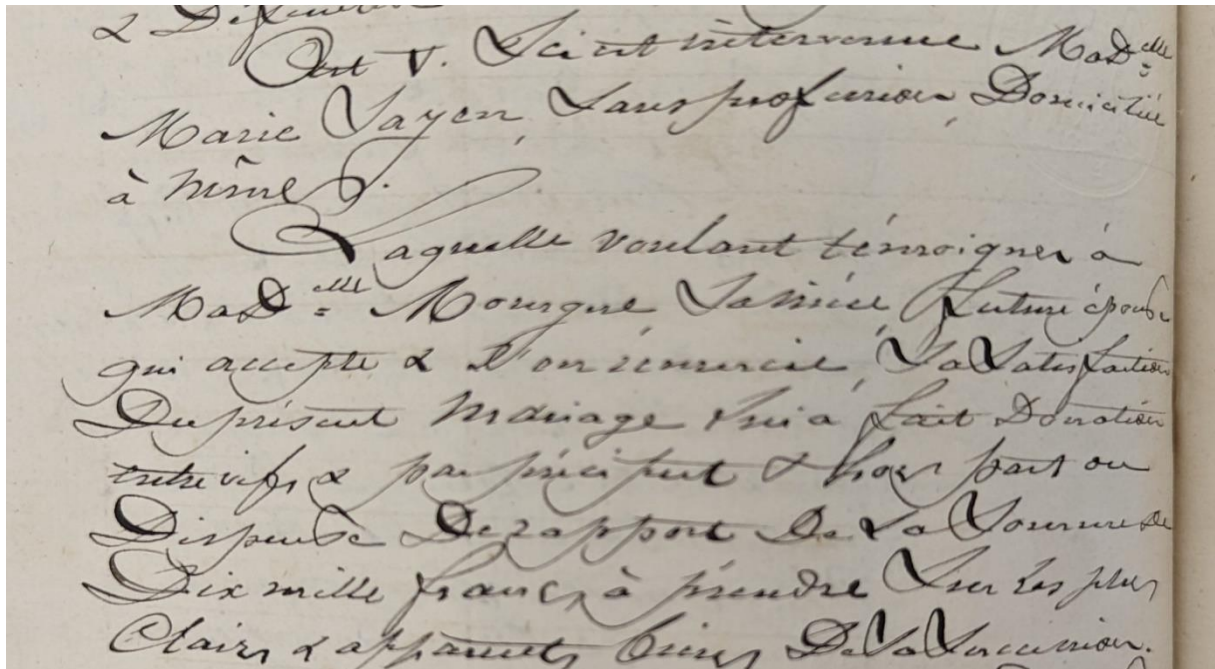 & D
Art V. Ici est intervenue Mad.elle
Marie Sayen, Sans profession, Domiciliée
à Nîmes.
Laquelle voulant témoigner à
Mad.elle Mourgue Sa nièce, future épouse
qui accepte & l'en remercie, Sa Satisfaction
Du présent Mariage lui a fait Donation
entre vifs & par préciput & hors part ou
Dispense De rapport De la Somme De
Dix mille francs à prendre Sur les plus
Clairs & apparents biens De Sa Succession.